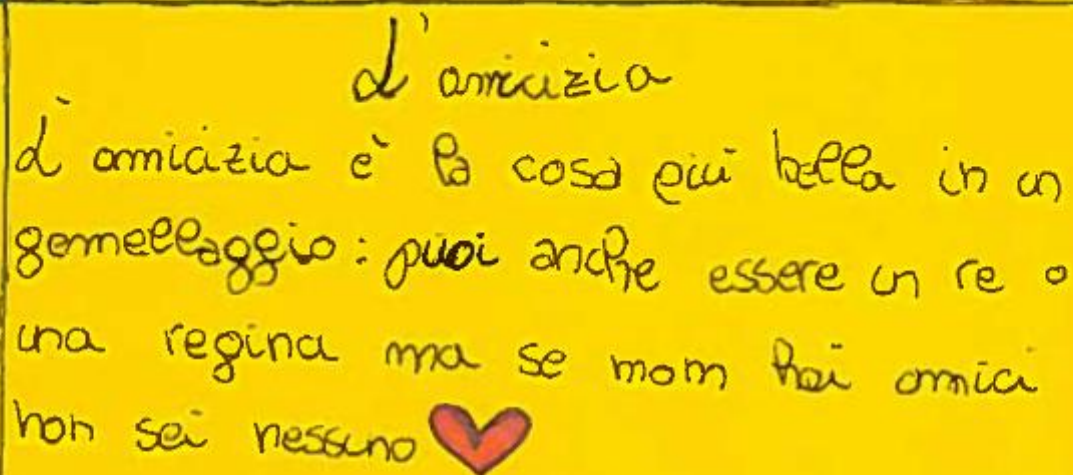 L'amicizia
L'amicizia è la cosa più bella in un
gemellaggio: puoi anche essere un re o
una regina ma se non hai amici
non sei nessuno